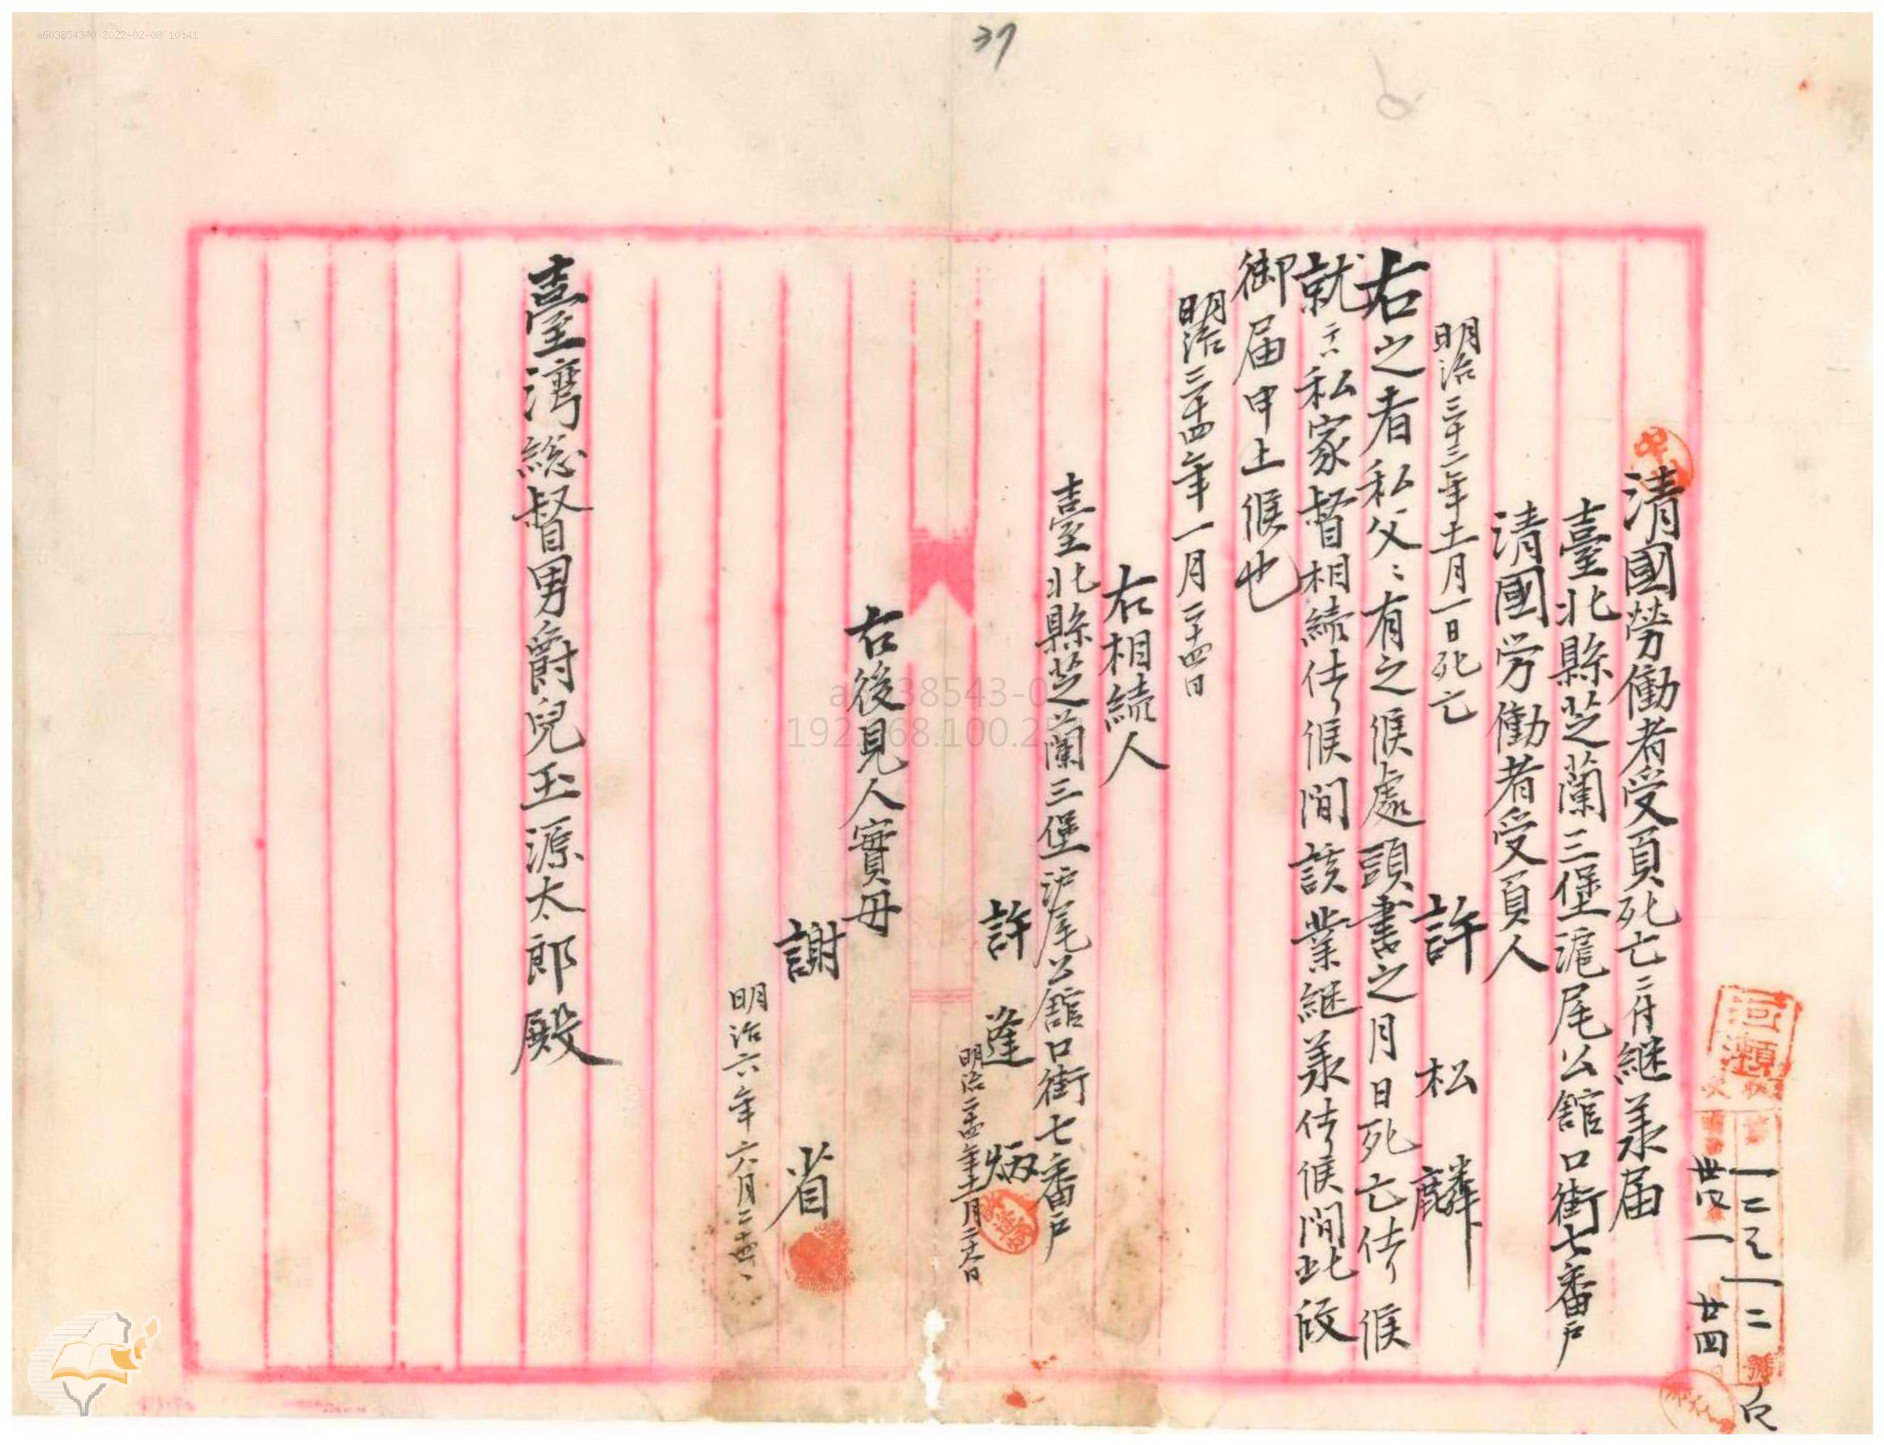 37
清國勞働者受負死亡ニ付継承届
臺北縣芝蘭三堡滬尾公館口街七番戶
清國労働者受負人
許松麟
明治三十三年十二月一日死亡
右之者私父ニ有之候處頭書之月日死亡仕候
就テハ私家督相続仕候間該業継承仕候間此段
御届申上候也
明治三十四年一月二十四日
右相続人
臺北縣芝蘭三堡沪尾公館口街七番戶
許逢炳
明治二十四年十二月二十六日
右後見人實母
謝省
明治六年六月二十四
臺灣総督男爵兒玉源太郎殿
河瀬
a6038543-0 2022-02-08 10:41